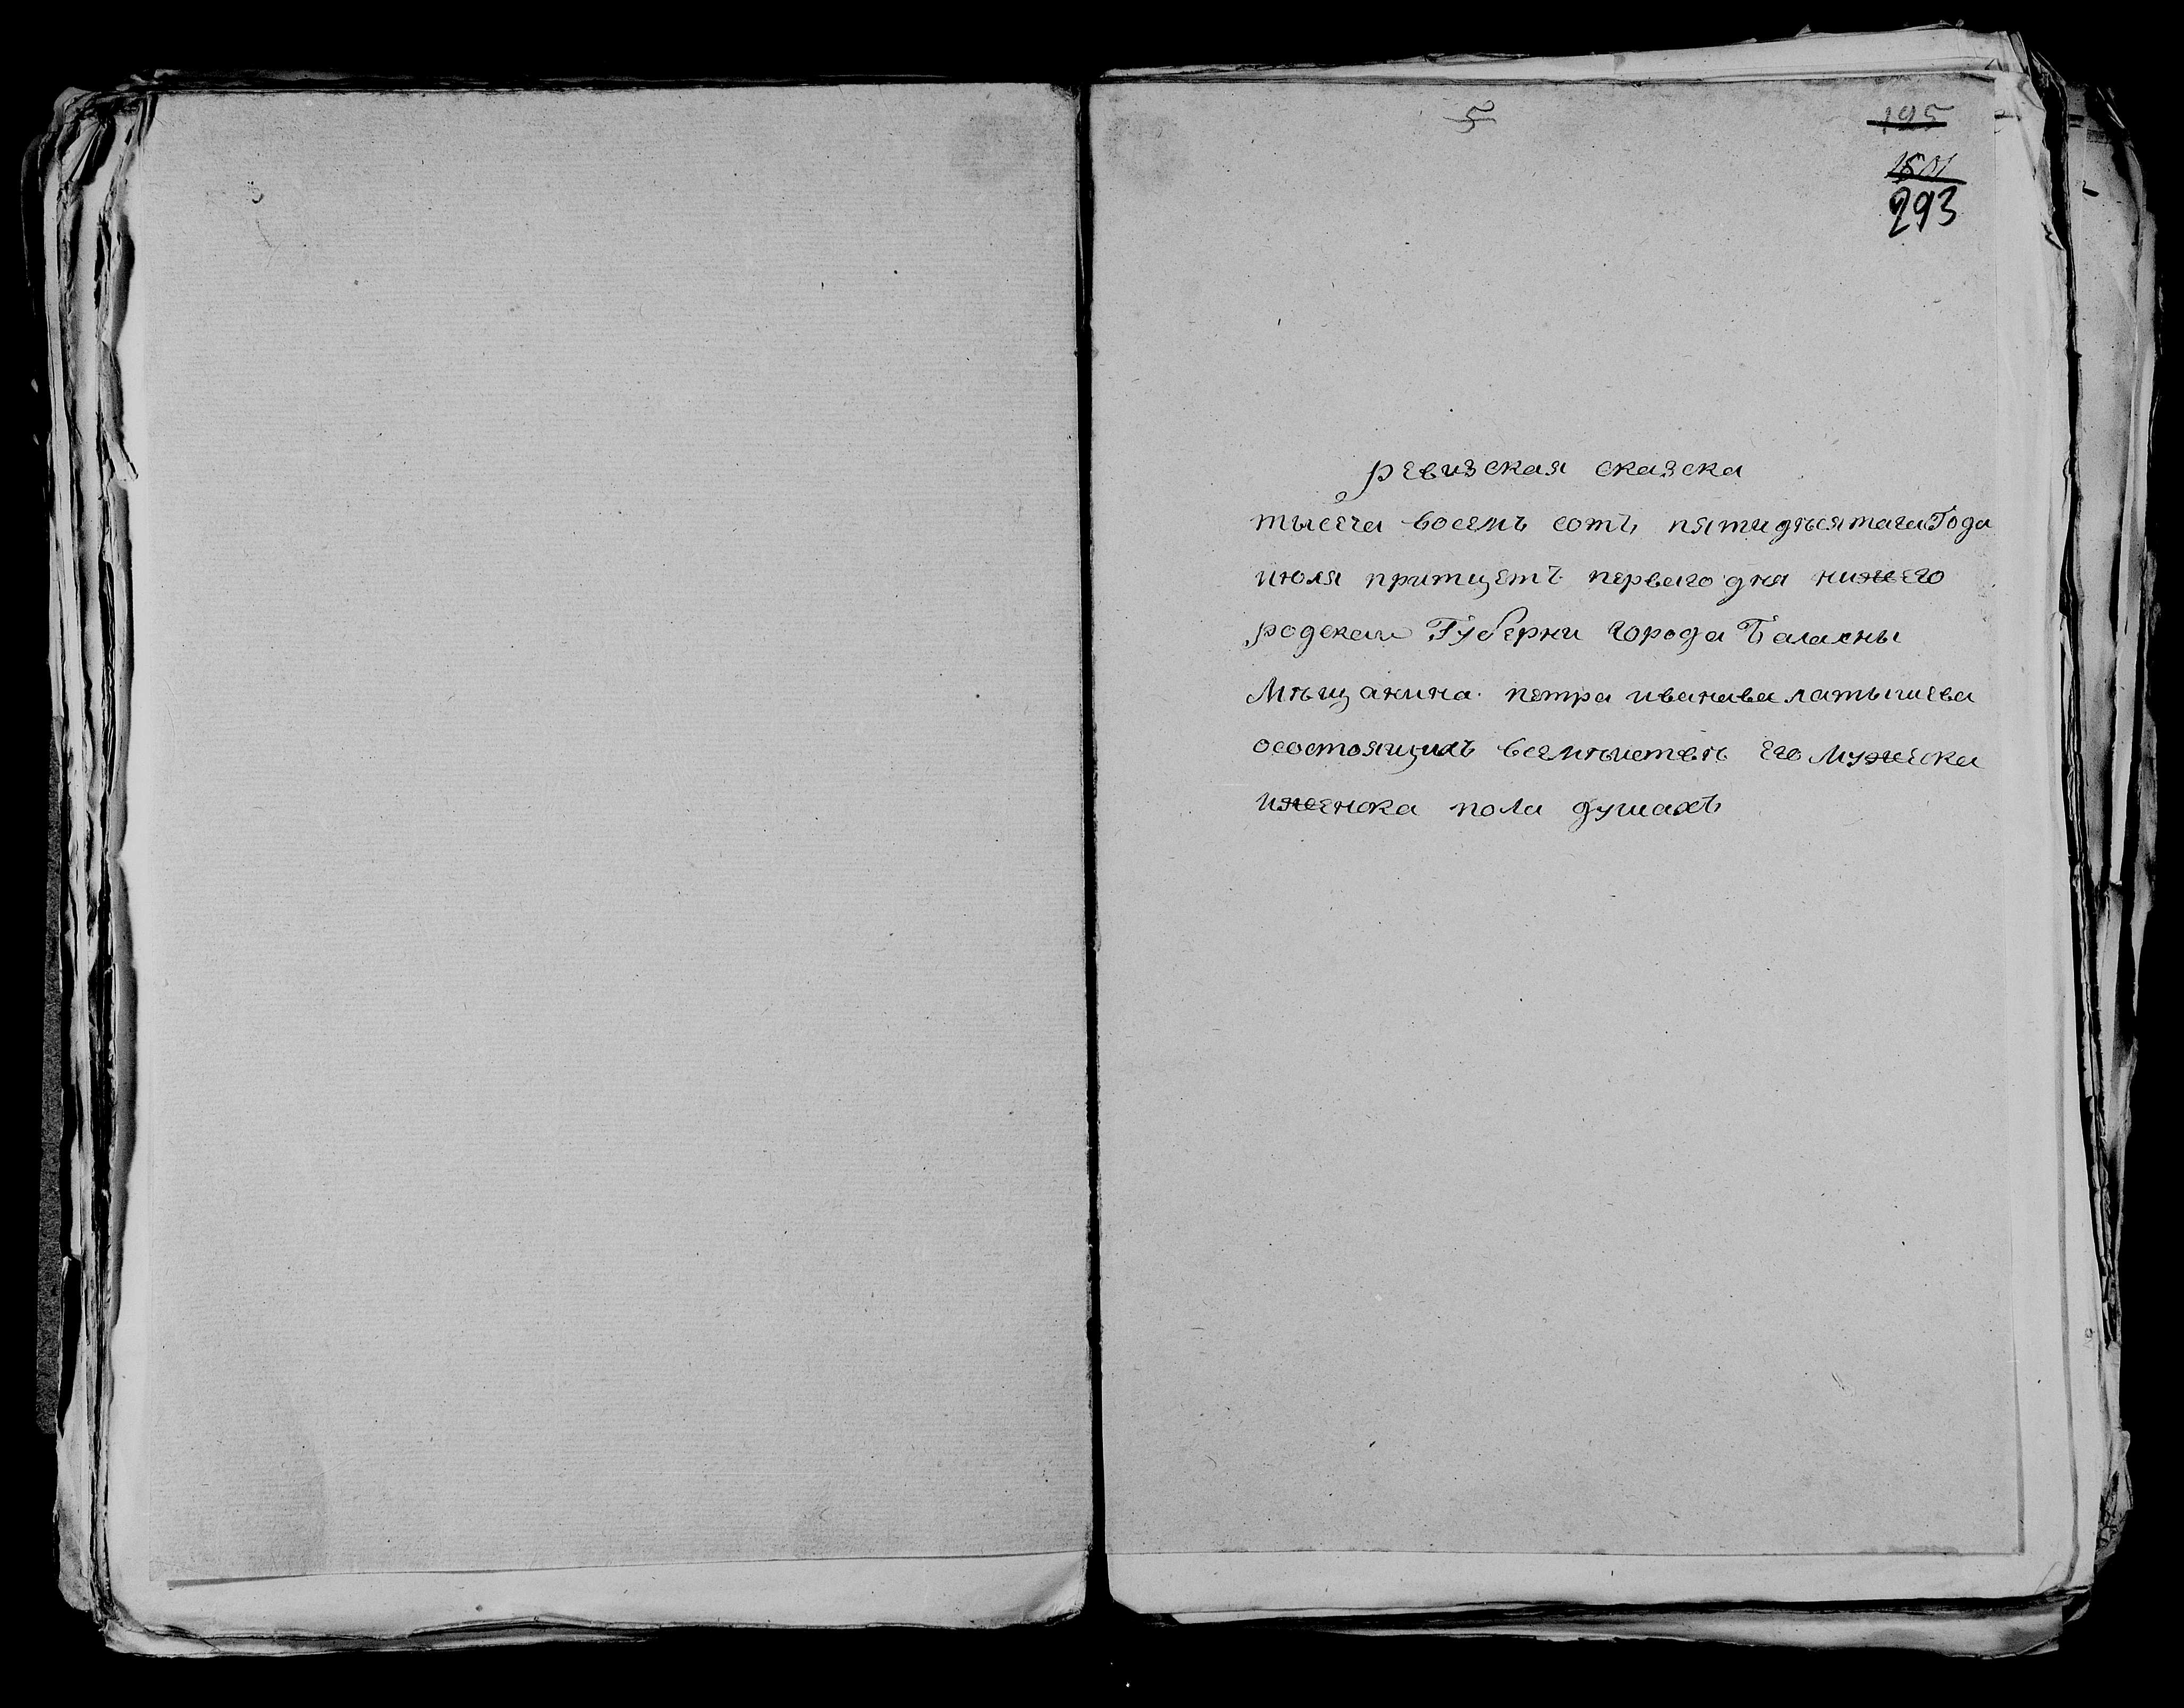 5
195
293
ревизская сказска
тысеча восемъ сотъ пятидѣсятага Года
июля притцетъ перваго дня нижего
родскаи Губерни города Балахны
Мѣщанина петра иванава латышева
осостоящихъ всемѣиствѣ его Мужеска
иженска пола душахъ